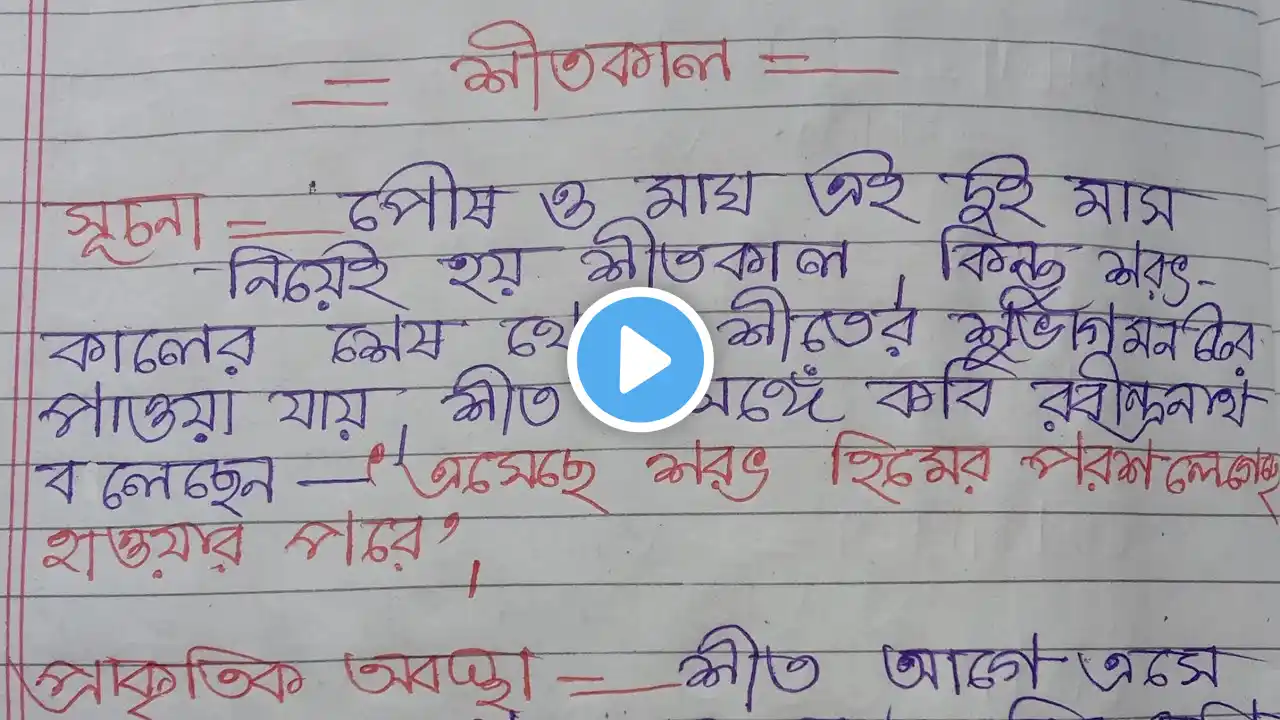 = শীতকাল =
সূচনা = পৌষ ও মাঘ এই দুই মাস
নিয়েই হয় শীতকাল, কিন্তু শরৎ-
কালের শেষ শীতের
পাওয়া যায়, শীত কবি রবীন্দ্রনাথ
বলেছেন — 'এসেছে শরৎ হিমের পরশ লেগেছে
হাওয়ার পরে',
প্রাকৃতিক অবস্থা = শীত আগে এসে